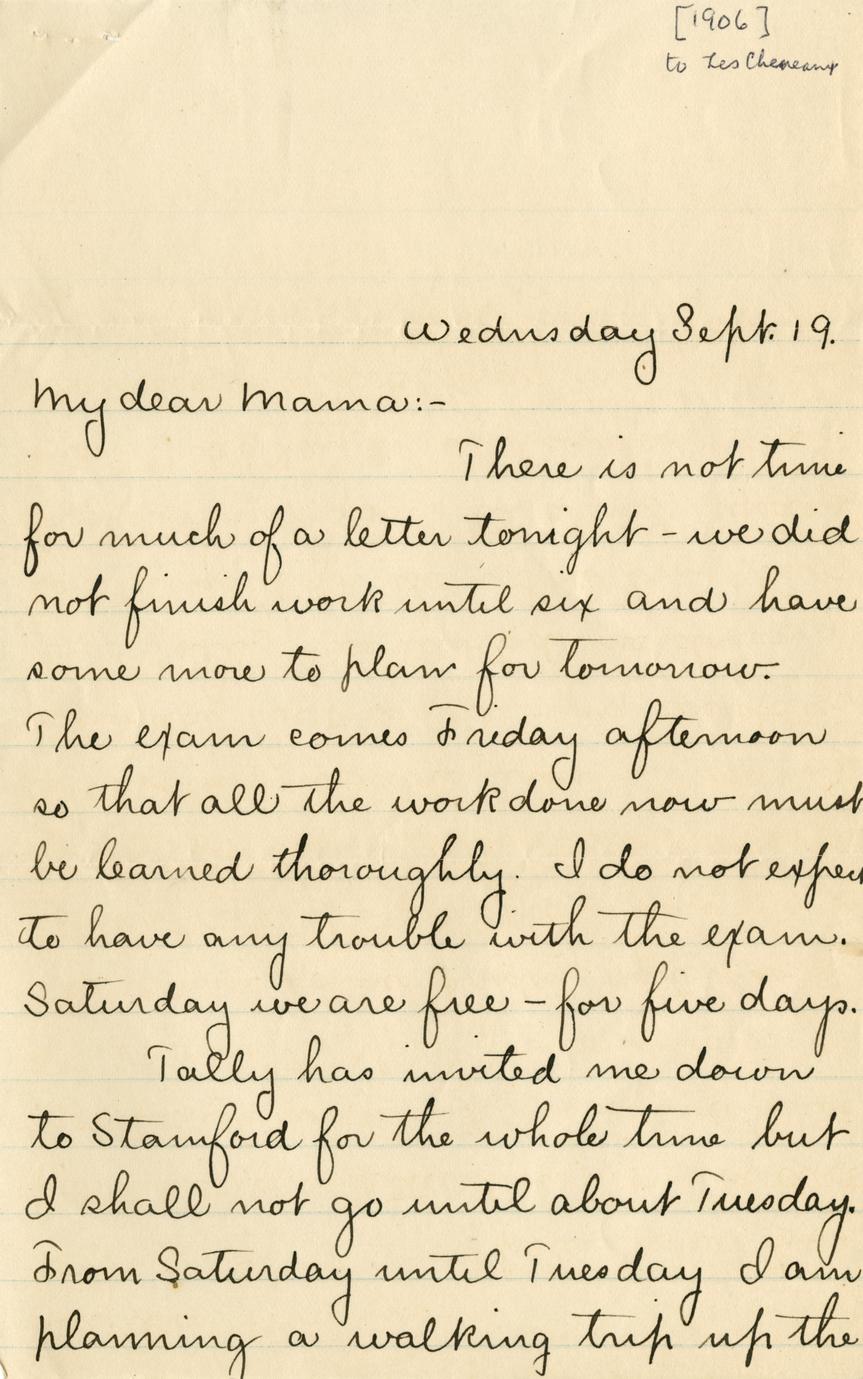 [1906]
to Les Cheneaux
Wednesday Sept. 19.
My dear Mama:-
There is not time
for much of a letter tonight - we did
not finish work until six and have
some more to plan for tomorrow.
The exam comes Friday afternoon
so that all the work done now must
be learned thoroughly. I do not expect
to have any trouble with the exam.
Saturday we are free - for five days.
Tally has invited me down
to Stamford for the whole time but
I shall not go until about Tuesday.
From Saturday until Tuesday I am
planning a walking trip up the